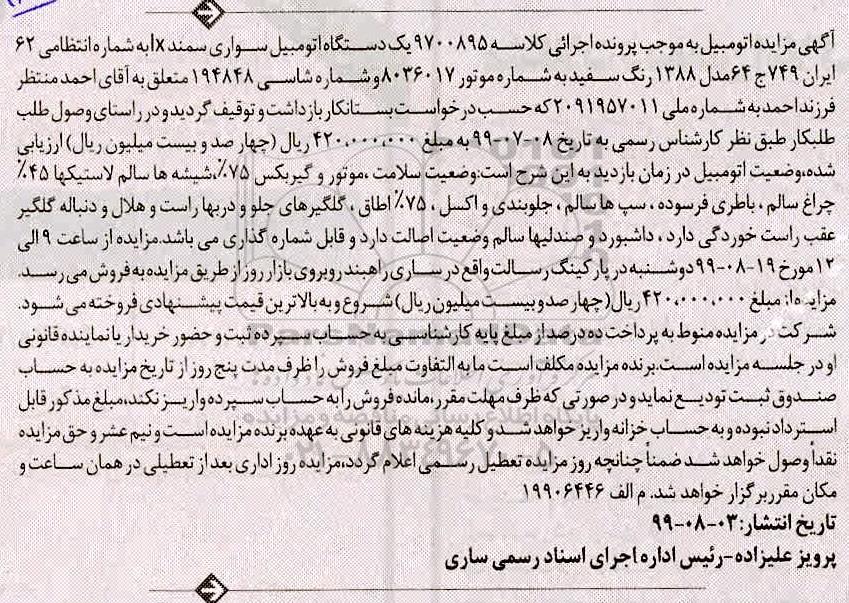 آگهی مزایده اتومبیل به موجب پرونده اجرائی کلاسه ۹۷۰۰۸۹۵ یک دستگاه اتومبیل سواری سمند lx به شماره انتظامی ۶۲
ایران ۷۴۹ج ۶۴ مدل ۱۳۸۸ رنگ سفید به شماره موتور ۸۰۳۶۰۱۷ و شماره شاسی ۱۹۴۸۴۸ متعلق به آقای احمد منتظر
فرزند احمد به شماره ملی ۲۰۹۱۹۵۷۰۱۱ که حسب درخواست بستانکار بازداشت و توقیف گردید و در راستای وصول طلب
طلبکار طبق نظر کارشناس رسمی به تاریخ ۰۸-۰۷-۹۹ به مبلغ ۴۲۰,۰۰۰,۰۰۰ ریال (چهار صد و بیست میلیون ریال) ارزیابی
شده،وضعیت اتومبیل در زمان بازدید به این شرح است:وضعیت سلامت ،موتور و گیربکس ۷۵٪،شیشه ها سالم لاستیکها ۴۵٪
چراغ سالم ، باطری فرسوده ، سپ ها سالم ، جلوبندی و اکسل ، ۷۵٪ اطاق ، گلگیرهای جلو و دربها راست و هلال و دنباله گلگیر
عقب راست خوردگی دارد ، داشبورد و صندلیها سالم وضعیت اصالت دارد و قابل شماره گذاری می باشد.مزایده از ساعت ۹ الی
۱۲ مورخ ۱۹-۰۸-۹۹ دوشنبه در پارکینگ رسالت واقع در ساری راهبند روبروی بازار روز از طریق مزایده به فروش می رسد.
مزایده از مبلغ ۴۲۰,۰۰۰,۰۰۰ ریال(چهار صد و بیست میلیون ریال) شروع و به بالاترین قیمت پیشنهادی فروخته می شود.
شرکت در مزایده منوط به پرداخت ده درصد از مبلغ پایه کارشناسی به حساب سپرده ثبت و حضور خریدار یا نماینده قانونی
او در جلسه مزایده است.برنده مزایده مکلف است ما به التفاوت مبلغ فروش را ظرف مدت پنج روز از تاریخ مزایده به حساب
صندوق ثبت تودیع نماید و در صورتی که ظرف مهلت مقرر،مانده فروش را به حساب سپرده واریز نکند،مبلغ مذکور قابل
استرداد نبوده و به حساب خزانه واریز خواهد شد و کلیه هزینه های قانونی به عهده برنده مزایده است و نیم عشر و حق مزایده
نقداً وصول خواهد شد ضمناً چنانچه روز مزایده تعطیل رسمی اعلام گردد،مزایده روز اداری بعد از تعطیلی در همان ساعت و
مکان مقرر برگزار خواهد شد. م الف ۱۹۹۰۶۴۴۶
تاریخ انتشار: ۰۳-۰۸-۹۹
پرویز علیزاده-رئیس اداره اجرای اسناد رسمی ساری